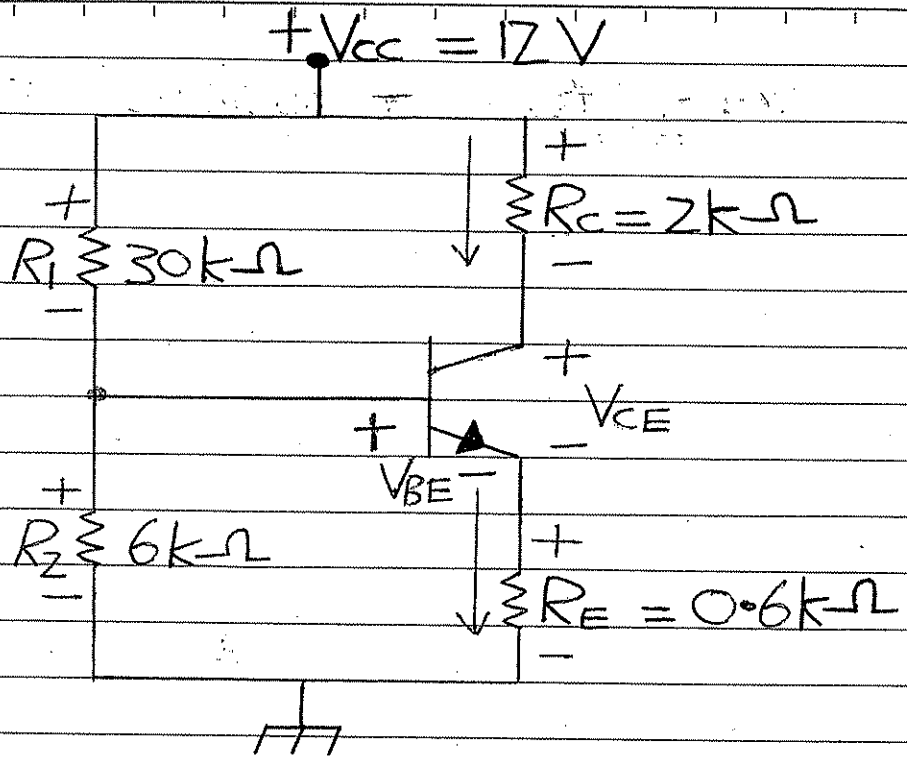 +Vcc = 12V
+
+
Rc = 2kΩ
R1 30kΩ
−
−
+
VCE
+
−
VBE −
+
+
R2 6kΩ
RE = 0.6kΩ
−
−